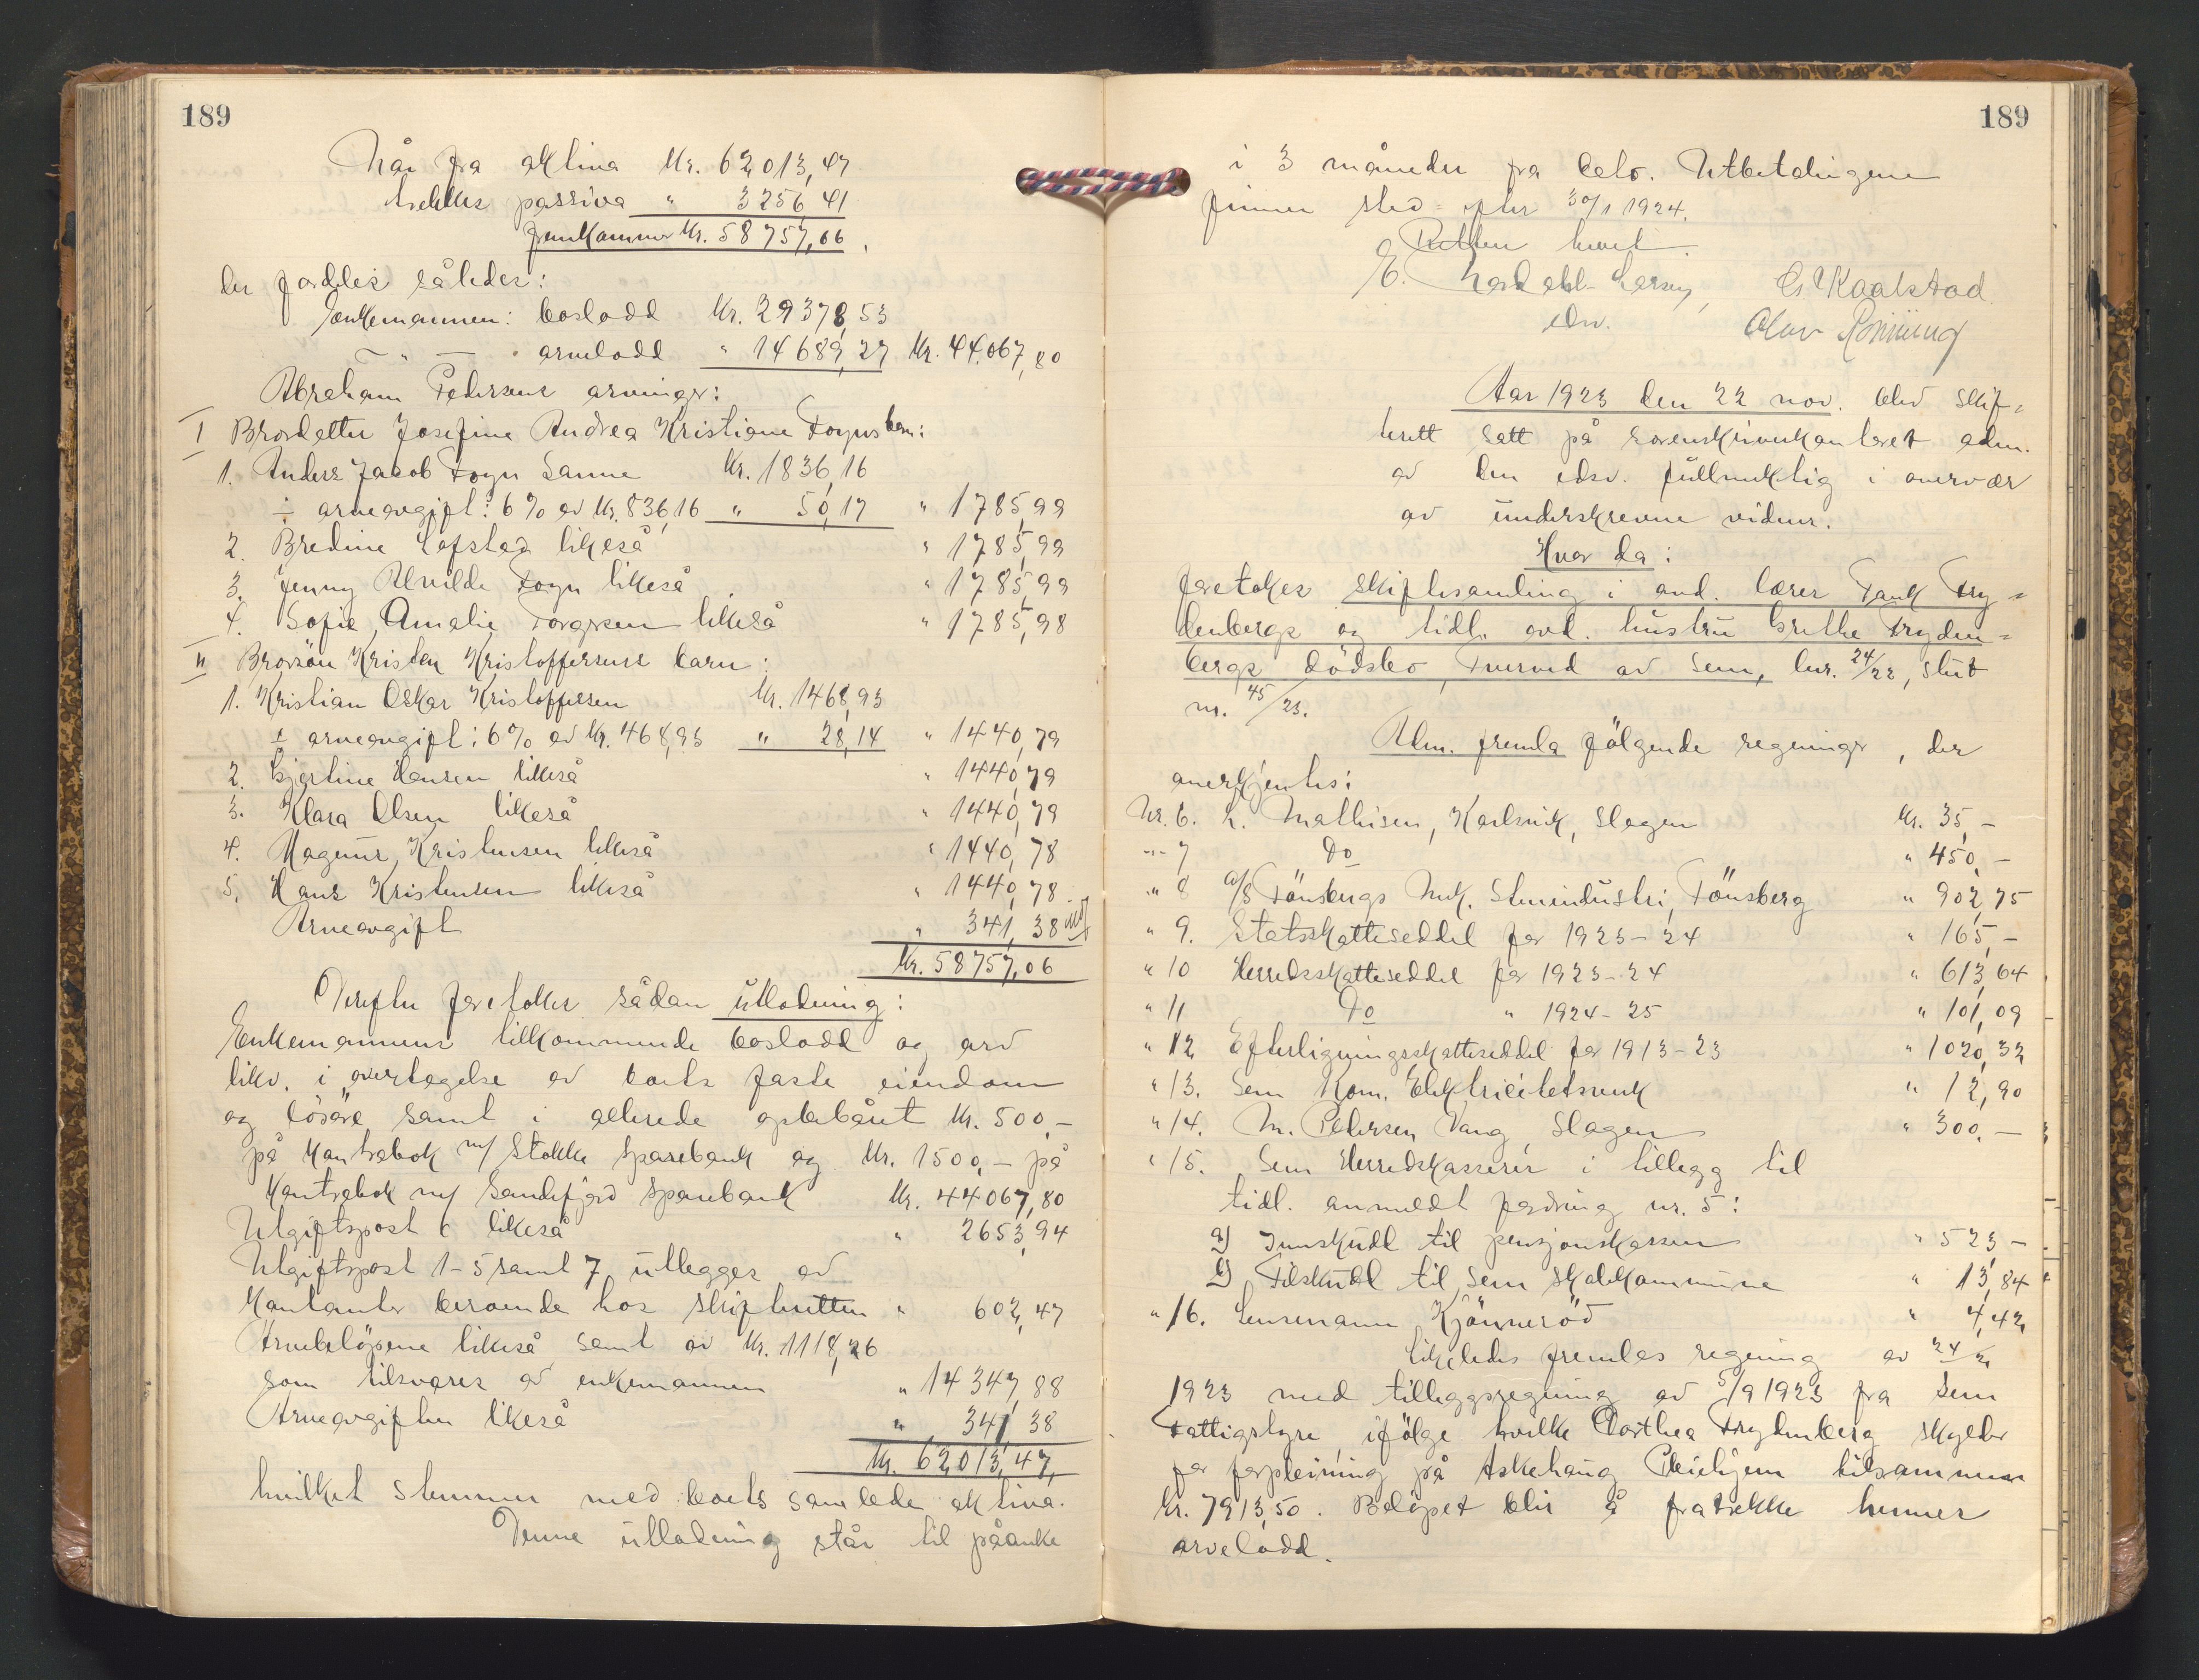 189
Når fra aktiva Kr. 62013,47
trekkes passiva " 3256,41
fremkommer Kr. 58757,06,
der fordeles således:
Enkemannen: boslodd Kr. 29378,53
— " — arvelodd " 14689,27 Kr. 44.067,80
Abraham Pedersens arvinger:
I Brordatter Josefine Andrea Kristiane Foyns barn:
1. Anders Jacob Foyn Sanne Kr. 1836,16
÷ arveavgift: 6% av Kr. 836,16 " 50,17 " 1785,99
2. Bredine Lofstad likeså " 1785,99
3. Jenny Alvilde Foyn likeså " 1785,99
4. Sofie Amalie Torgersen likeså " 1785,98
II Brorsøn Kristen Kristoffersens barn:
1. Kristian Oskar Kristoffersen Kr. 1468,93
÷ arveavgift: 6% av Kr. 468,93 " 28,14 " 1440,79
2. Gjertine Hansen likeså " 1440,79
3. Klara Olsen likeså " 1440,79
4. Magnus Kristensen likeså " 1440,78
5. Hans Kristensen likeså " 1440,78
Arveavgift " 341,38
Kr. 58757,06
Derefter foretokes sådan utlodning:
Enkemannens tilkommende boslodd og arv
likv. i overtagelse av boets faste eiendom
og løsøre samt i allerede oppebåret Kr. 500,-
på kontrabok m/ Stokke Sparebank og Kr. 1500,- på
kontrabok m/ Sandefjord Sparebank Kr. 44067,80
Utgiftspost 6 likeså " 2653,94
Utgiftspost 1-5 samt 7 utlegges av
kontanter beroende hos skifteretten " 602,47
Arvebeløpene likeså samt av Kr. 1118,26
som tilsvares av enkemannen " 14347,88
Arveavgiften likeså " 341,38
Kr. 62013,47,
hvilket stemmer med boets samlede aktiva.
Denne utlodning står til påanke
189
i 3 måneder fra dato. Utbetalingene
finner sted efter 30/1 1924.
Retten hevet
E. Larsen, G. Kaalstad
edsv. Olav Rønning
Aar 1923 den 22 nov. blev skif-
terett satt på sorenskriverkontoret adm.
av den edsv. fullmektig i overvær
av underskrevne vidner.
Hvor da:
foretokes skiftesamling i avd. lærer Tank Fry-
denbergs og tidl. avd. hustru Grethe Fryden-
bergs dødsbo, Tverved av Sem, lnr. 24/22, slut
nr. 45/23.
Adm. fremla følgende regninger, der
anerkjentes:
Nr. 6. H. Mathisen, Karlsvik, Slagen Kr. 35,-
"- 7 Do " 450,-
" 8 A/S Tønsbergs Mek. Stenindustri, Tønsberg " 902,75
" 9. Statsskatteseddel for 1923-24 " 165,-
" 10 Herredsskatteseddel for 1923-24 " 613,64
" 11 Do " 1924-25 " 101,09
" 12 Efterligningsskatteseddel for 1913-23 " 1020,32
" 13. Sem Kom. Elektricitetsverk " 12,90
" 14. M. Pedersen Vang, Slagen " 300,-
" 15. Sem Herredskasserer i tillegg til
tidl. anmeldt fordring nr. 5:
a) Innskudd til pensjonskassen " 523,-
b) Tilskudd til Sem skolekommune " 13,84
" 16. Lensmann Kjønnerød " 4,42
Likeledes fremlaes regning av 24/2
1923 med tilleggsregning av 5/9 1923 fra Sem
Fattigstyre, ifølge hvilke Dorthea Frydenberg skylder
for forpleining på Askehaug Pleiehjem tilsammen
Kr. 7913,50. Beløpet blir å fratrekke hennes
arvelodd.